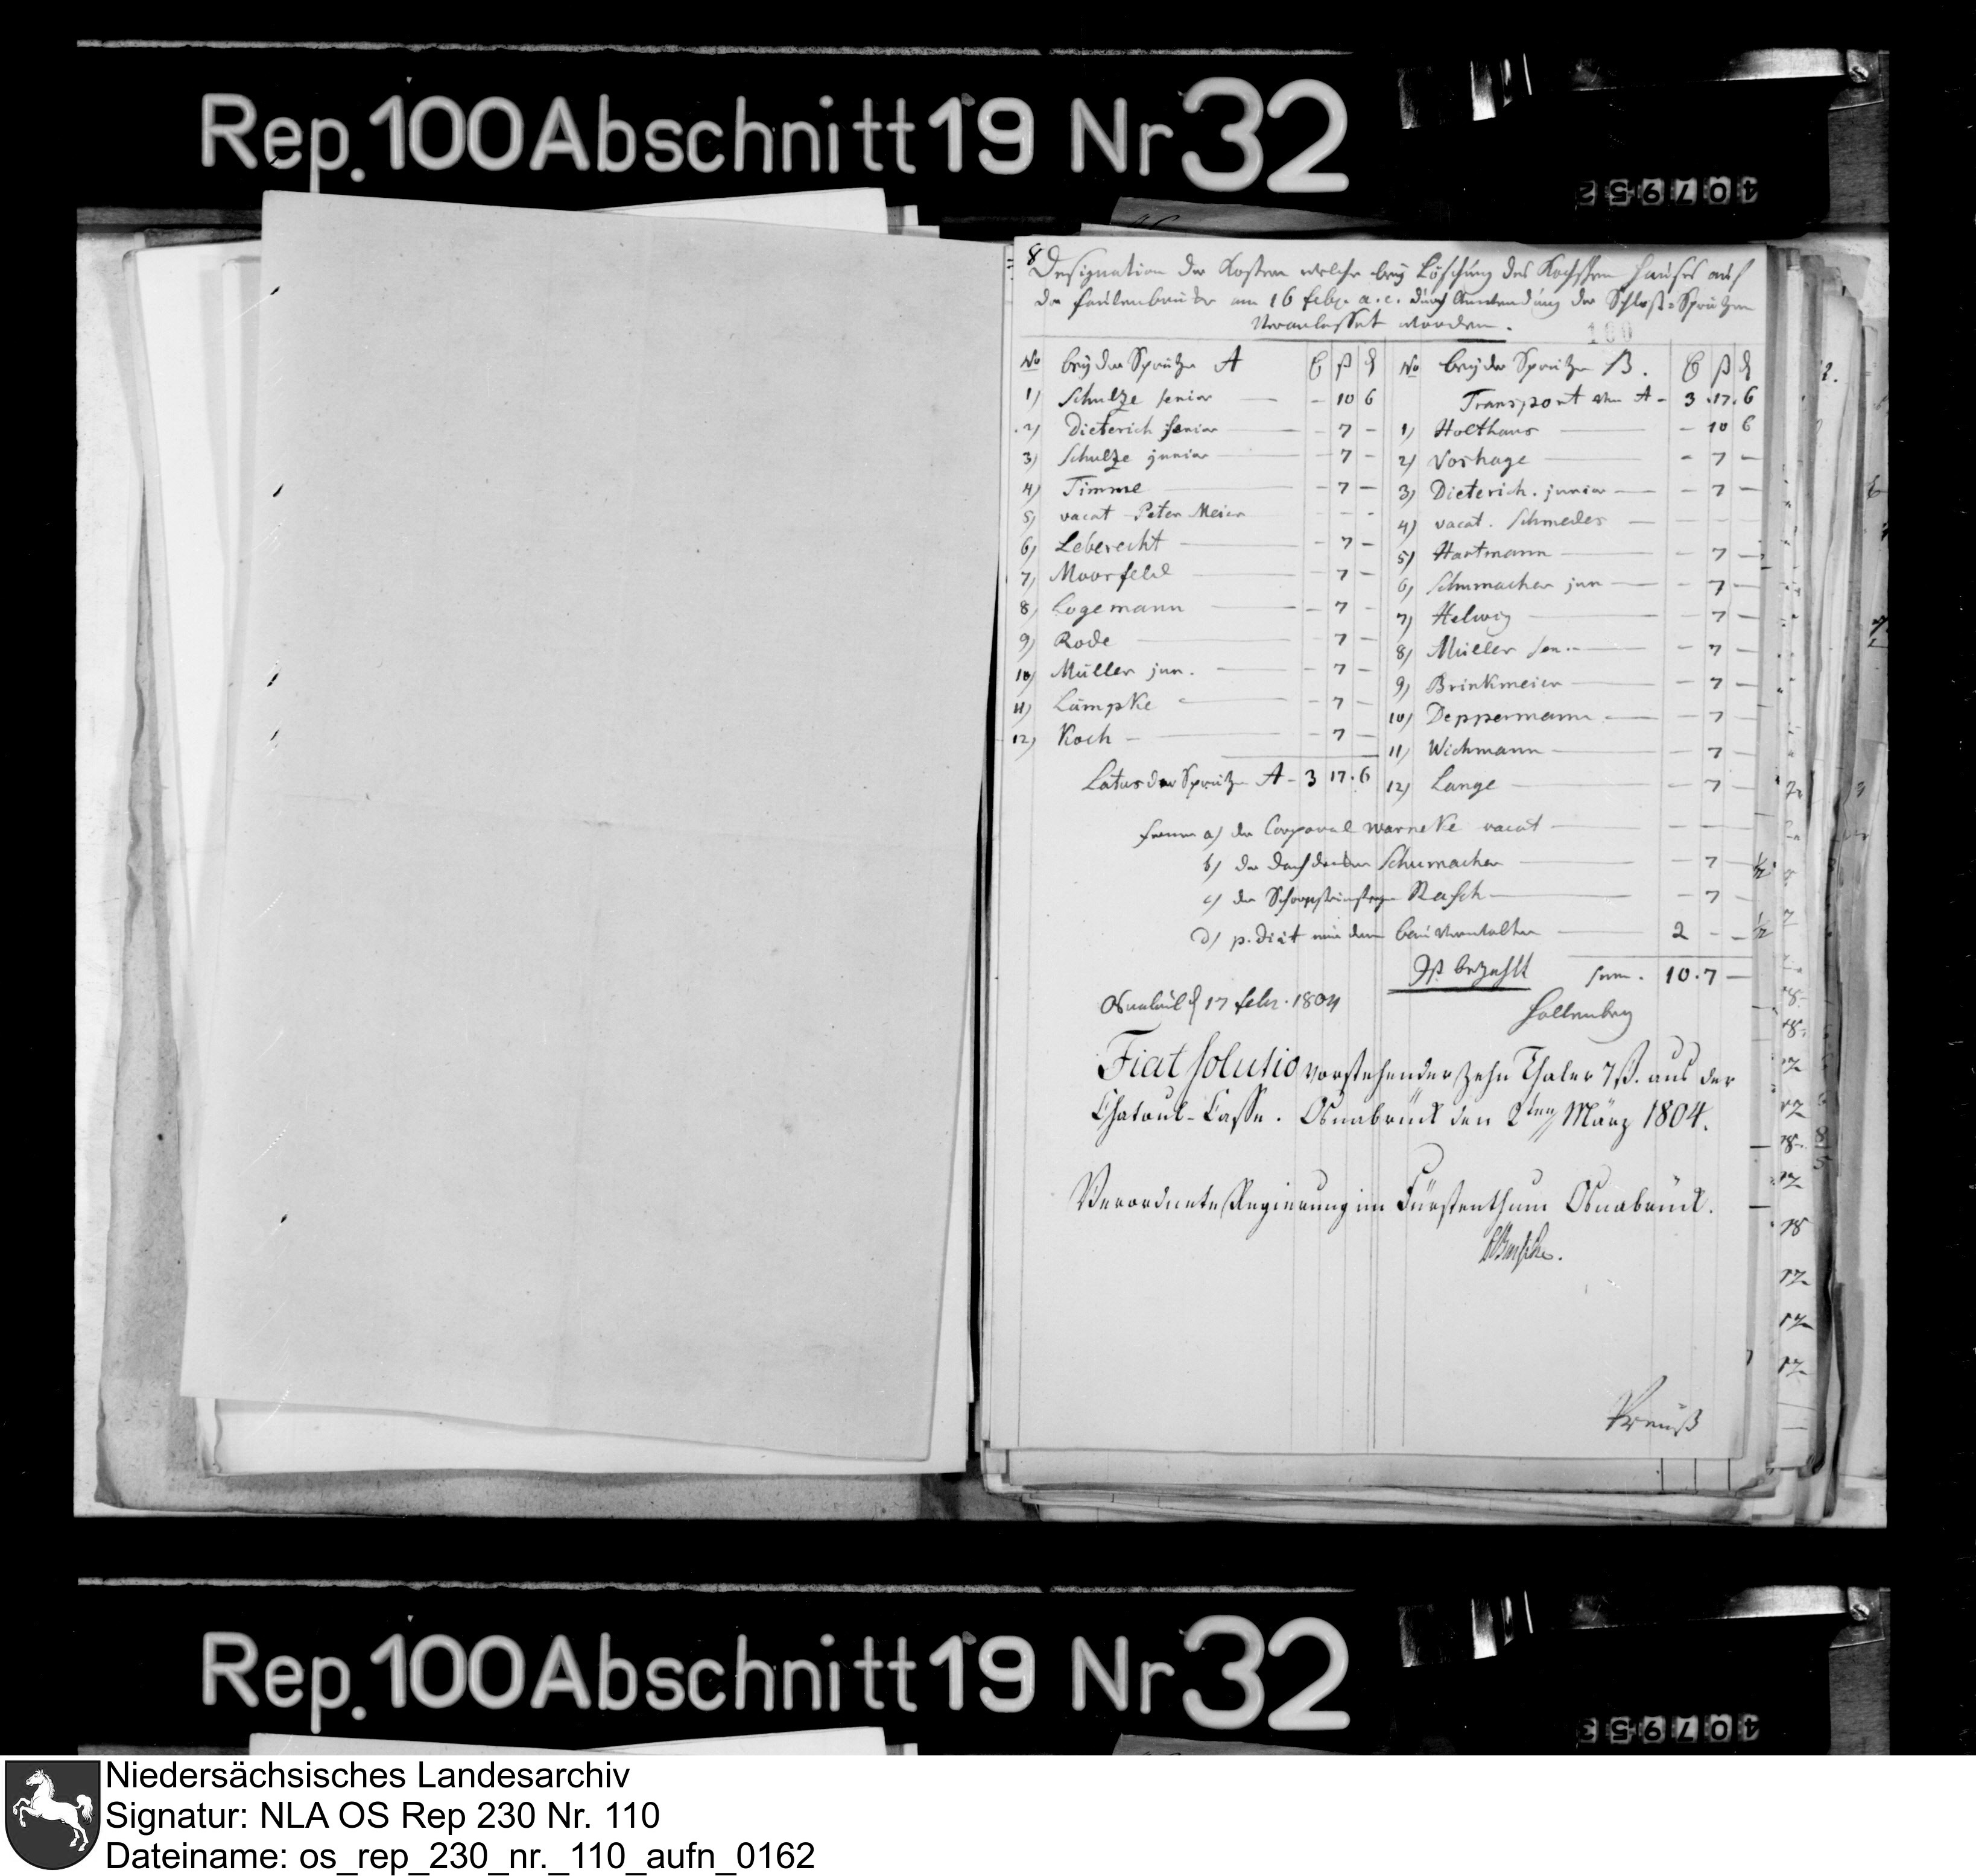 Rep. 100 Abschnitt 19 Nr 32
407952
8
Designation der Kosten welche bey Löschung des Kochschen Hauses auf
der 16 febr. a. c. durch Anwendung der Schloß-Sprützen
Veranlasset worden.
160
No bey der Sprütze A
1) Schulze senior — - 10 6
2) Dieterich senior — - 7 -
3) Schulze junior — - 7 -
4) Timme — - 7 -
5) vacat Peter Meier - - -
6) Leberecht — - 7 -
7) Moorfeld — - 7 -
8) Logemann — - 7 -
9) Rode — - 7 -
10) Müller jun. — - 7 -
11) Lümpke — - 7 -
12) Koch — - 7 -
Latus der Sprütze A - 3 17. 6
No bey der Sprütze B.
Transport von A - 3. 17. 6
1) Holthaus — - 10 6
2) Vorhage — - 7 -
3) Dieterich. junior — - 7 -
4) vacat. Schmedes — - - -
5) Hartmann — - 7 -
6) Schumacher jun — - 7 -
7) Helwig — - 7 -
8) Müller sen. — - 7 -
9) Brinkmeier — - 7 -
10) Deppermann — - 7 -
11) Wichmann — - 7 -
12) Lange — - 7 -
ferner a) der Corporal Warneke vacat — - - -
b) der Dachdecker Schumacher — - 7 -
c) der Schornsteinfeger Rasch — - 7 -
d) p. Diät mir dem Bauverwalter — 2 - -
Ist bezahlt Sum. 10. 7 -
Osnabrück d 17 febr. 1804
Hollenberg
Fiat solutio vorstehender zehn Thaler 7 ß. aus der
Chatoul-Casse. Osnabrück den 2ten März 1804.
Verordnete Regierung im Fürstenthum Osnabrück.
Preuß
Rep. 100 Abschnitt 19 Nr 32
407953
Niedersächsisches Landesarchiv
Signatur: NLA OS Rep 230 Nr. 110
Dateiname: os_rep_230_nr._110_aufn_0162